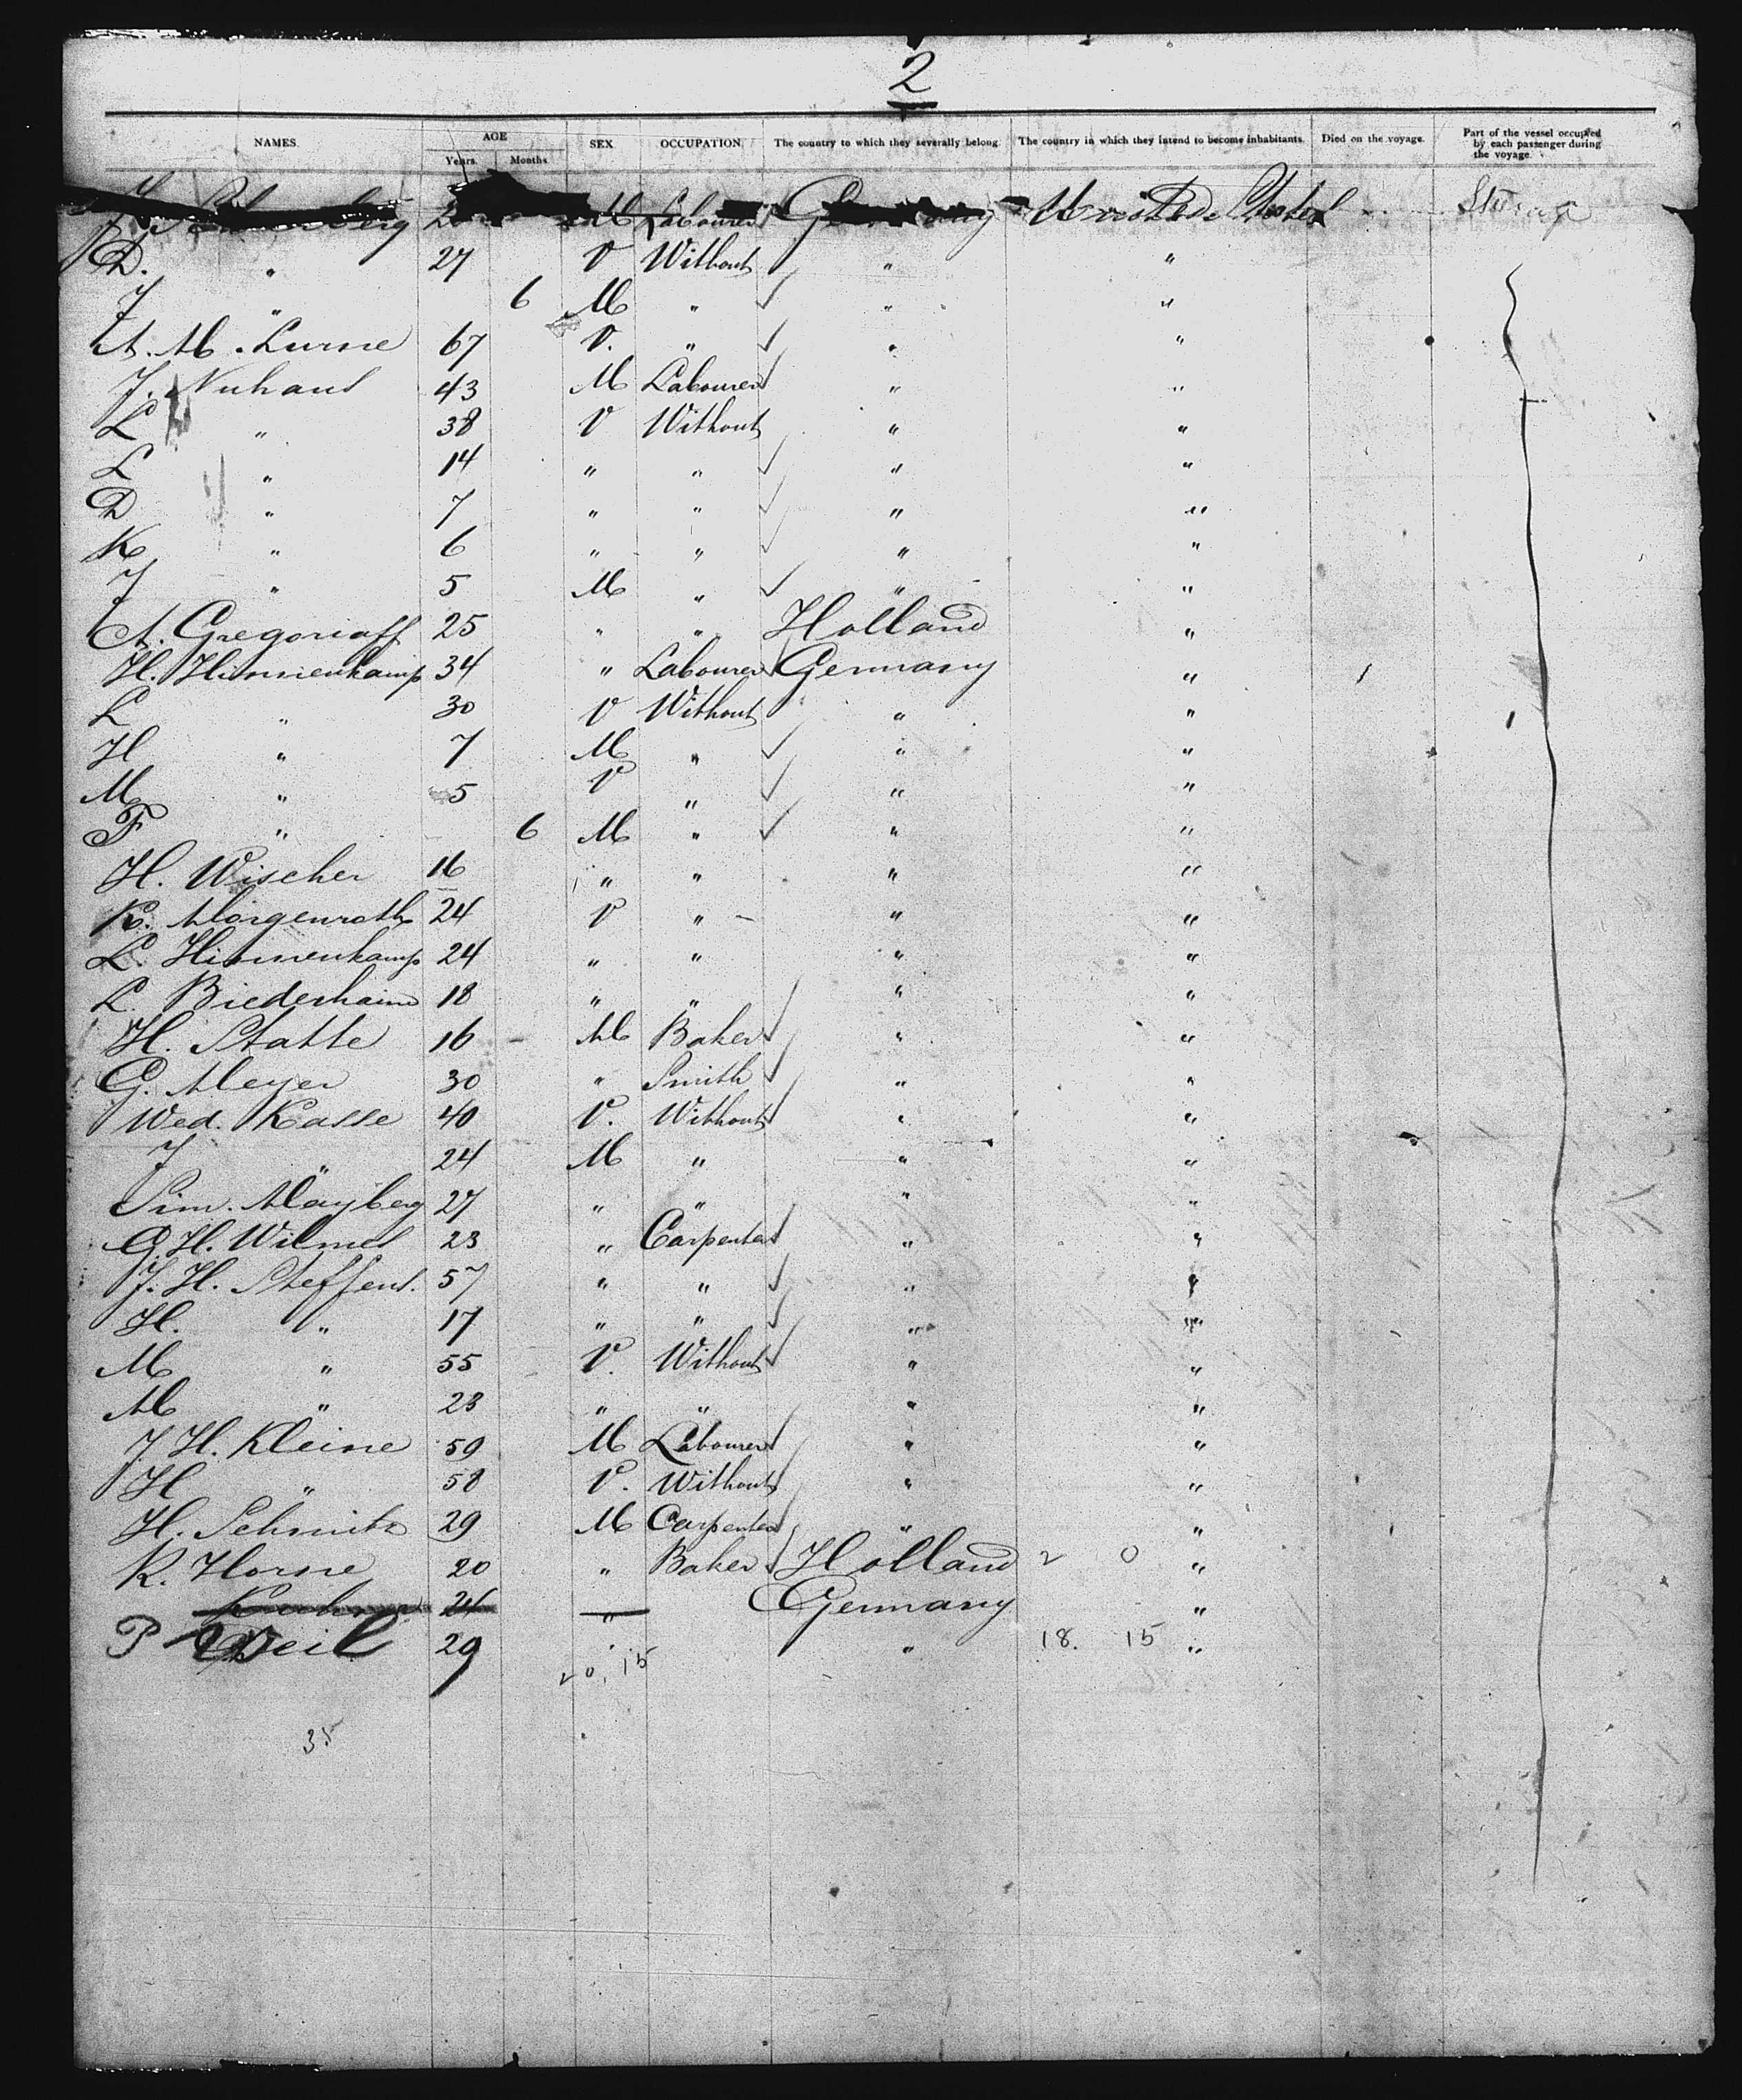 2
NAMES. AGE SEX OCCUPATION. The country to which they severally belong. The country in which they intend to become inhabitants. Died on the voyage. Part of the vessel occupied by each passenger during the voyage.
Years. Months.
M Labourer Germany United States
D. " 27 V Without " "
J " 6 M " " "
A. M. Lurne 67 V. " " "
J. Nuhaus 43 M Labourer " "
L " 38 V Without " "
L " 14 " " " "
D " 7 " " " "
K " 6 " " " "
J " 5 M " " "
A. Gregoriaff 25 " " Holland "
H. Hinnenkamp 34 " Labourer Germany "
L " 30 V Without " "
H " 7 M " " "
M " 5 V " " "
F " 6 M " " "
H. Wischer 16 " " " "
K. Morgenroth 24 V " " "
L. Hinnenkamp 24 " " " "
L. Biederhaine 18 " " " "
H. Statte 16 M Baker " "
G. Meyer 30 " Smith " "
Wed. Kasse 40 V. Without " "
J " 24 M " " "
Sim. Mayberg 27 " " " "
G. H. Wilmes 23 " Carpenter " "
J. H. Steffens. 57 " " " "
H. " 17 " " " "
M " 55 V. Without " "
M " 23 " " " "
J. H. Kleine 59 M Labourer " "
H " 58 V. Without " "
H. Schmitz 29 M Carpenter " "
K. Horne 20 " Baker Holland 2 0 "
24 " Germany "
P Weil 29 " " 18. 15 "
20, 15
35